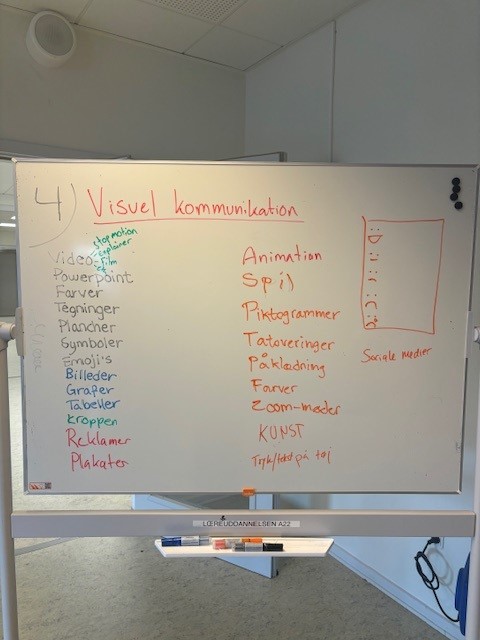 4) Visuel kommunikation
stopmotion
explainer
film
Video
Powerpoint
Farver
Tegninger
Plancher
Symboler
Emoji's
Billeder
Grafer
Tabeller
Kroppen
Reklamer
Plakater
Animation
Spil
Piktogrammer
Tatoveringer
Påklædning
Farver
Zoom-møder
KUNST
Tryk/tekst på tøj
Sociale medier
LÆREUDDANNELSEN A22